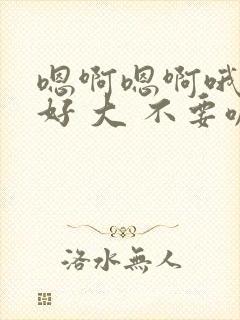 嗯啊嗯啊哦
好大不要
洛水無人